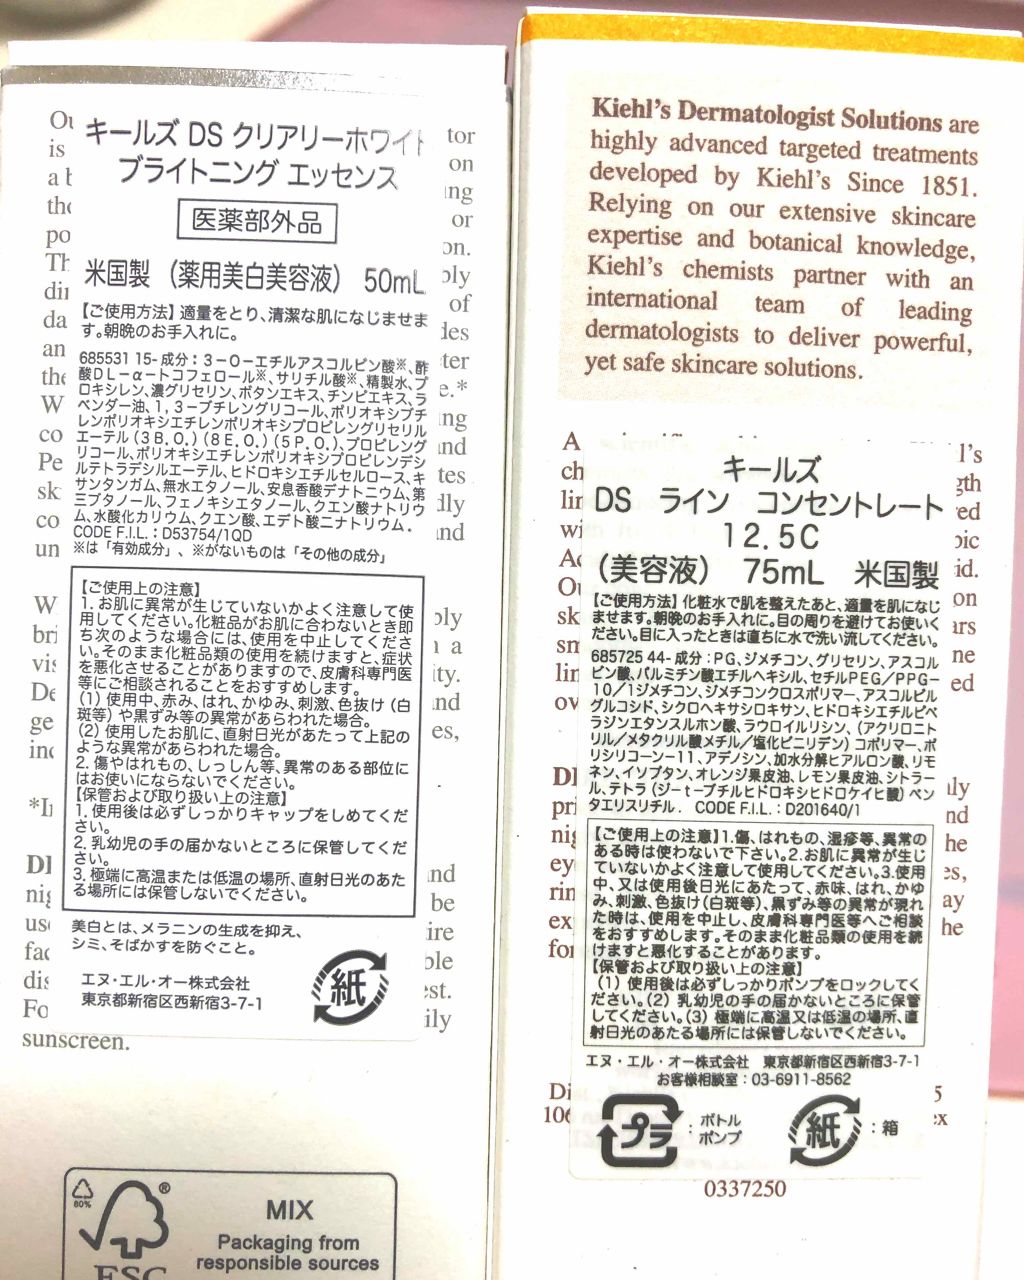 キールズ DS クリアリーホワイト
ブライトニング エッセンス
医薬部外品
米国製 (薬用美白美容液) 50mL
【ご使用方法】適量をとり、清潔な肌になじませま
す。朝晩のお手入れに。
685531 15- 成分：3－O－エチルアスコルビン酸※、酢
酸DL－α－トコフェロール※、サリチル酸※、精製水、プ
ロキシレン、濃グリセリン、ボタンエキス、チンピエキス、ラ
ベンダー油、1, 3－ブチレングリコール、ポリオキシブチ
レンポリオキシエチレンポリオキシプロピレングリセリル
エーテル (3B.O.) (8E.O.) (5P.O.)、プロピレング
リコール、ポリオキシエチレンポリオキシプロピレンデシ
ルテトラデシルエーテル、ヒドロキシエチルセルロース、キ
サンタンガム、無水エタノール、安息香酸デナトニウム、第
三ブタノール、フェノキシエタノール、クエン酸ナトリウ
ム、水酸化カリウム、クエン酸、エデト酸二ナトリウム．
CODE F.I.L. : D53754/1QD
※は「有効成分」、※がないものは「その他の成分」
【ご使用上の注意】
1. お肌に異常が生じていないかよく注意して使
用してください。化粧品がお肌に合わないとき即
ち次のような場合には、使用を中止してくださ
い。そのまま化粧品類の使用を続けますと、症状
を悪化させることがありますので、皮膚科専門医
等にご相談されることをおすすめします。
(1) 使用中、赤み、はれ、かゆみ、刺激、色抜け (白
斑等) や黒ずみ等の異常があらわれた場合。
(2) 使用したお肌に、直射日光があたって上記の
ような異常があらわれた場合。
2. 傷やはれもの、しっしん等、異常のある部位に
はお使いにならないでください。
【保管および取り扱い上の注意】
1. 使用後は必ずしっかりキャップをしめてくだ
さい。
2. 乳幼児の手の届かないところに保管してくだ
さい。
3. 極端に高温または低温の場所、直射日光のあた
る場所には保管しないでください。
美白とは、メラニンの生成を抑え、
シミ、そばかすを防ぐこと。
エヌ・エル・オー株式会社
東京都新宿区西新宿3-7-1
紙
sunscreen.
80%
®
FSC
MIX
Packaging from
responsible sources
Kiehl's Dermatologist Solutions are
highly advanced targeted treatments
developed by Kiehl's Since 1851.
Relying on our extensive skincare
expertise and botanical knowledge,
Kiehl's chemists partner with an
international team of leading
dermatologists to deliver powerful,
yet safe skincare solutions.
キールズ
DS ライン コンセントレート
12.5C
(美容液) 75mL 米国製
【ご使用方法】化粧水で肌を整えたあと、適量を肌になじ
ませます。朝晩のお手入れに。目の周りを避けてお使いく
ださい。目に入ったときは直ちに水で洗い流してください。
685725 44- 成分：PG、ジメチコン、グリセリン、アスコル
ビン酸、パルミチン酸エチルヘキシル、セチルPEG／PPG－
10／1ジメチコン、ジメチコンクロスポリマー、アスコルビル
グルコシド、シクロヘキサシロキサン、ヒドロキシエチルピペ
ラジンエタンスルホン酸、ラウロイルリシン、(アクリロニト
リル／メタクリル酸メチル／塩化ビニリデン) コポリマー、ポ
リシリコーン－11、アデノシン、加水分解ヒアルロン酸、リモ
ネン、イソブタン、オレンジ果皮油、レモン果皮油、シトラー
ル、テトラ (ジーt－ブチルヒドロキシヒドロケイヒ酸) ペン
タエリスリチル． CODE F.I.L. : D201640/1
【ご使用上の注意】1. 傷、はれもの、湿疹等、異常の
ある時は使わないで下さい。2. お肌に異常が生じ
ていないかよく注意して使用してください。3. 使用
中、又は使用後日光にあたって、赤味、はれ、かゆ
み、刺激、色抜け (白斑等)、黒ずみ等の異常が現れ
た時は、使用を中止し、皮膚科専門医等へご相談
をおすすめします。そのまま化粧品類の使用を続
けますと悪化することがあります。
【保管および取り扱い上の注意】
(1) 使用後は必ずしっかりポンプをロックしてく
ださい。(2) 乳幼児の手の届かないところに保管
してください。(3) 極端に高温又は低温の場所、直
射日光のあたる場所には保管しないでください。
エヌ・エル・オー株式会社 東京都新宿区西新宿3-7-1
お客様相談室：03-6911-8562
プラ : ボトル
ポンプ
紙 : 箱
0337250